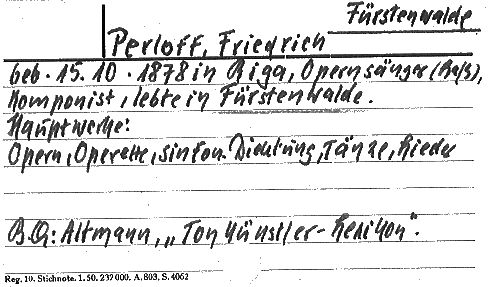 Fürstenwalde
Perloff, Friedrich
geb. 15. 10. 1878 in Riga, Opernsänger (Baß),
Komponist, lebte in Fürstenwalde.
Hauptwerke:
Opern, Operette, sinfon. Dichtung, Tänze, Lieder
B.Q.: Altmann, „Tonkünstler-Lexikon".
Reg. 10. Stichnote. 1. 50. 237000. A. 803, S. 4062